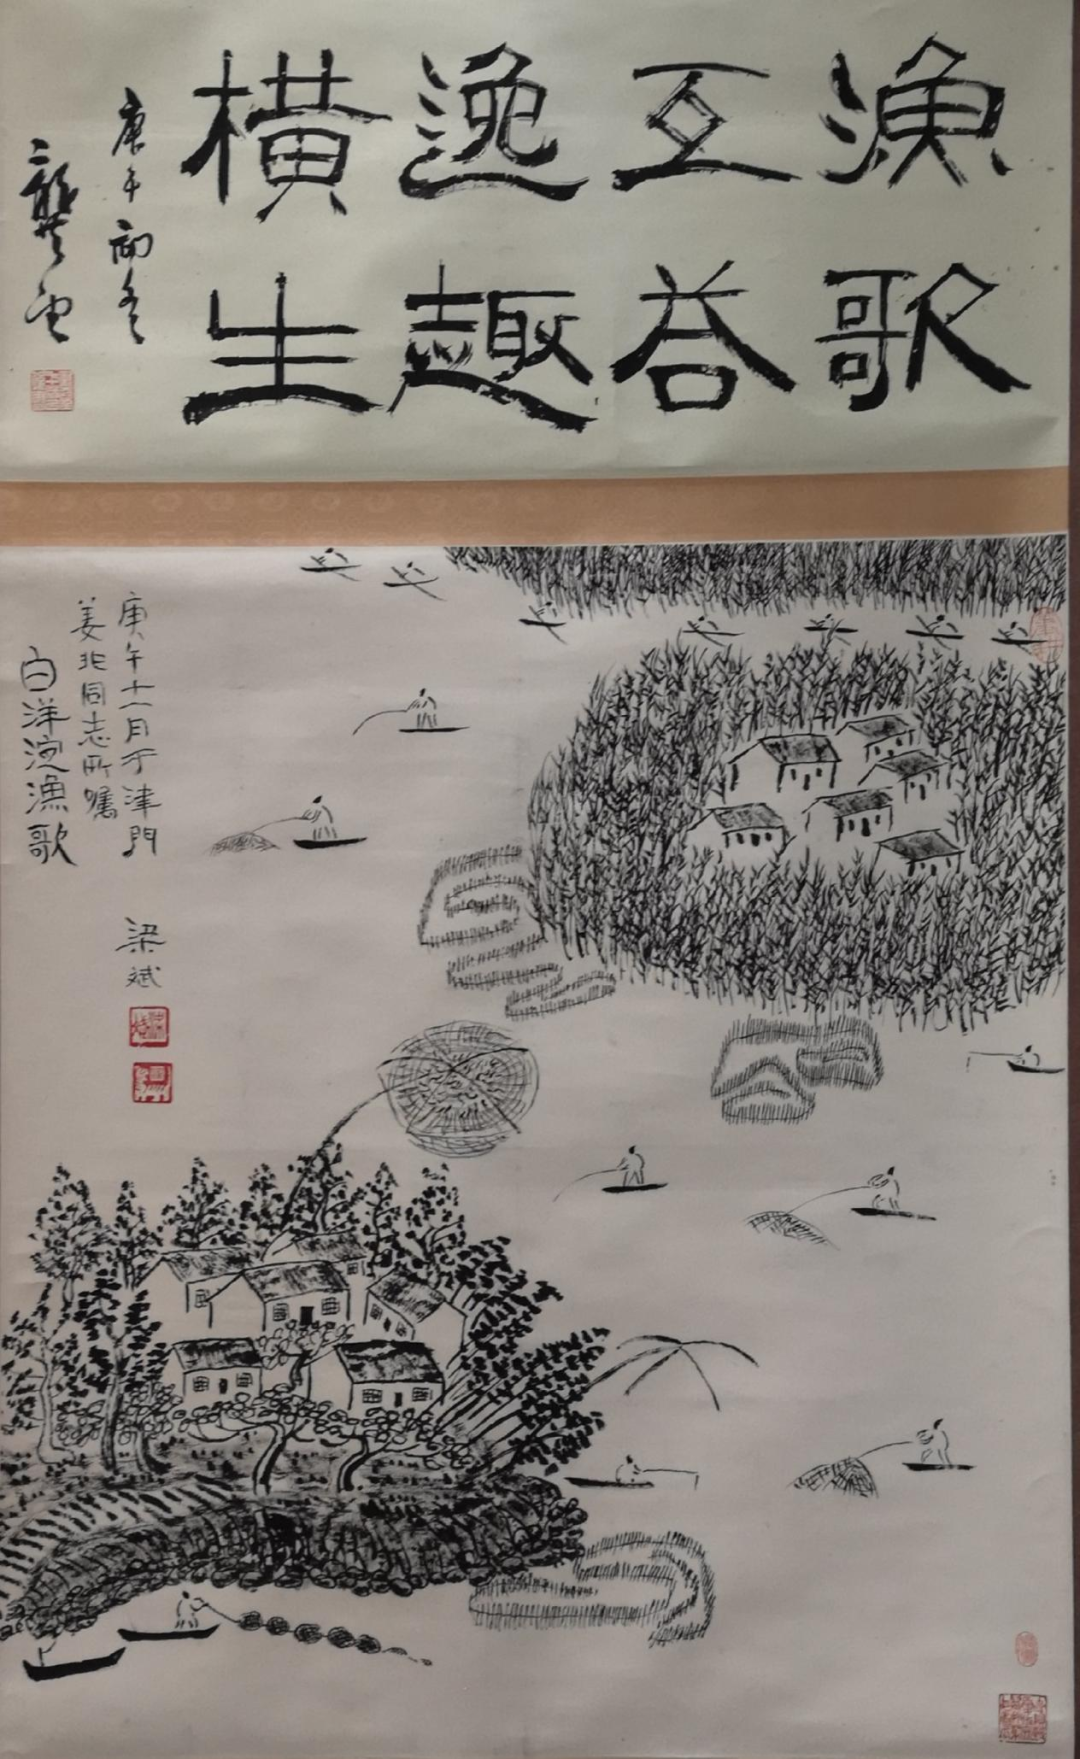 漁歌
互荅
逸趣
橫生
庚午初冬
龔望
白洋淀漁歌
姜北同志所嘱
庚午十一月于津門
梁斌